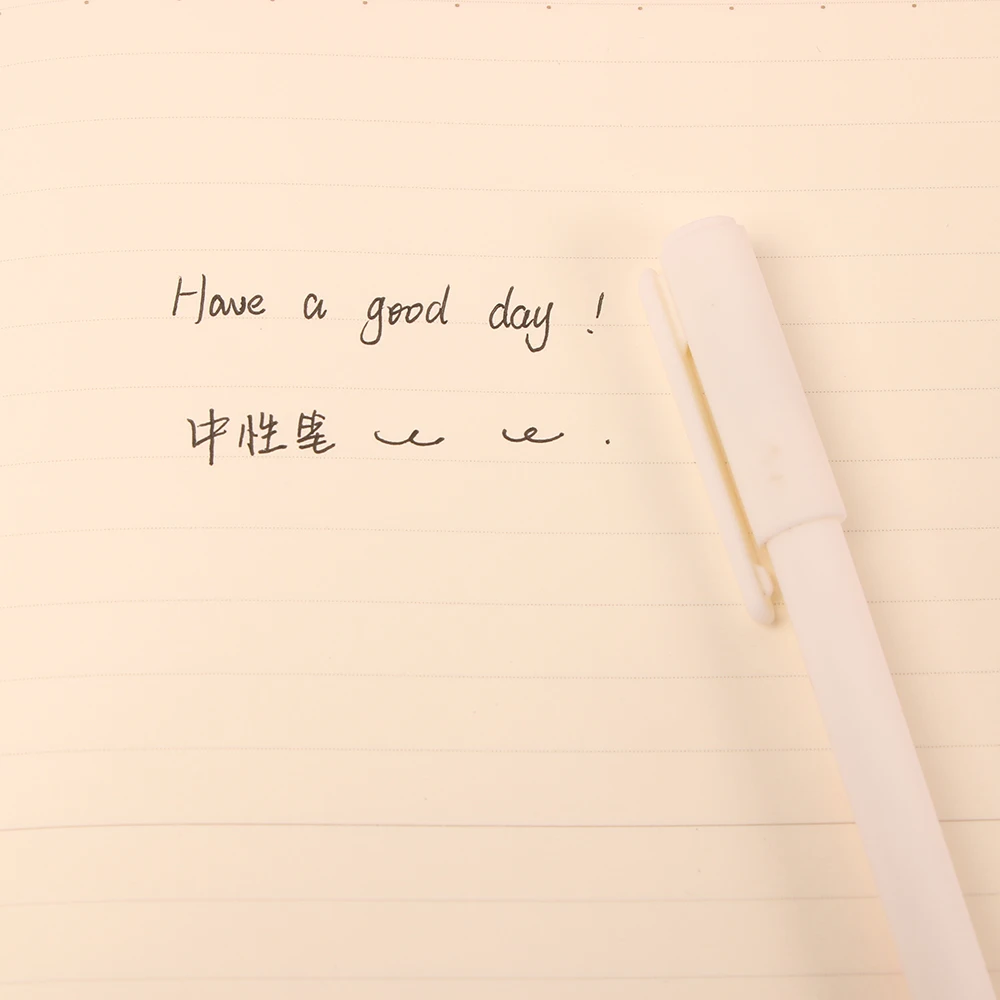 Have a good day!
中性笔